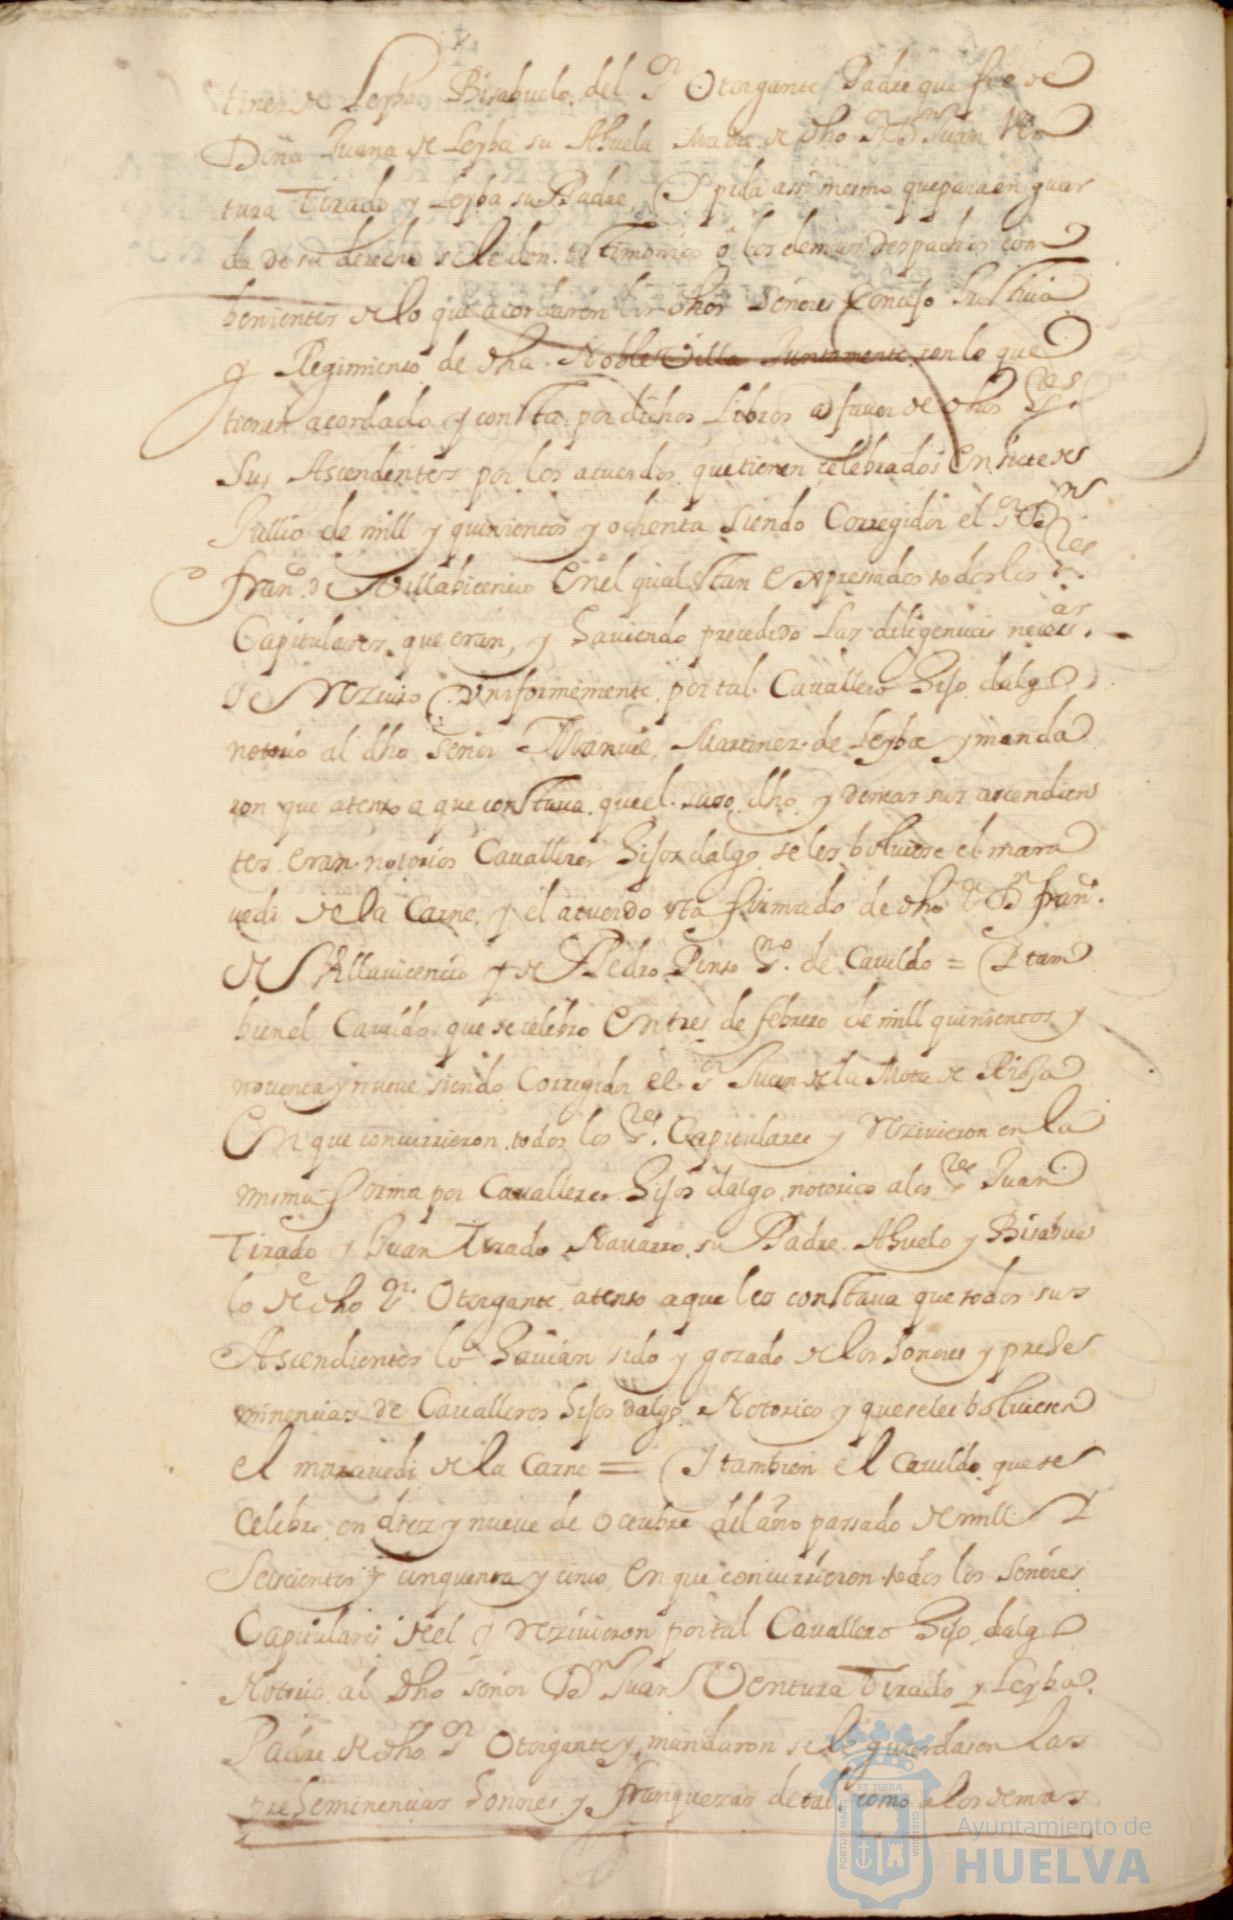 tinez de Leyba Bisabuelo del Sr Otorgante Padre que fue de
Doña Juana de Leyba su Abuela Madre de dho Sr Dn Juan Ven
tura Tirado y Leyba su Padre, Y pida assi mesmo que para en guar
da de su derecho se le den testimonios o los demas despachos com
benientes de lo que acordaren los dhos Señores Concejo Justicia
y Regimiento de dha Noble Villa Juntamente con lo que
tienen acordado y consta por dichos Libros a favor de dhos Sres
Sus Ascendientes por los acuerdos que tienen celebrados En siete de
Jullio de mill y quinientos y ochenta siendo Corregidor el Sr Dn
Franco de Villabicencio En el qual estan Expressados todos los Sres
Capitulares que eran, y haviendo precedido las diligencias necesas.
se Rezivio Uniformemente por tal Cavallero Hijo dalgo
notorio al dho Señor Manuel Martinez de Leyba y manda
ron que atento a que constava que el suso dho y demas sus ascendien
tes eran notorios Cavalleros Hijos dalgo se les bolviese el mara
vedi de la Carne y el acuerdo esta firmado de dho Sr Dn Franco
de Villavicencio y de Pedro Pinto Sno de Cavildo = Y tam
bien el Cavildo que se celebro En tres de febrero de mill quinientos y
noventa y nueve siendo Corregidor el Sr Juan de la Mota de
En que concurrieron todos los Sres Capitulares y Rezivieron en la
misma forma por Cavalleros Hijos dalgo notorios a los Sres Juan
Tirado y Juan Tirado Navarro su Padre Abuelo y Bisabue
lo de dho Sr Otorgante atento a que les constava que todos sus
Ascendientes lo havian sido y gozado de los honores y prehe
minencias de Cavalleros Hijos dalgo Notorios y que se les bolviesen
el maravedi de la Carne = Y tambien el Cavildo que se
Celebro en diez y nueve de Octubre del año passado de mill
Seiscientos y cinquenta y cinco En que concurrieron todos los Señores
Capitulares del y Rezivieron por tal Cavallero Hijo dalgo
Notorio al dho señor Dn Juan Ventura Tirado y Leyba
Padre de dho Sr Otorgante y mandaron se le guardaron las
preheminencias honores y franquezas de tal como a los demas
ET TERRÆ
PORTUS MARIS
CUSTODIA
Ayuntamiento de
HUELVA